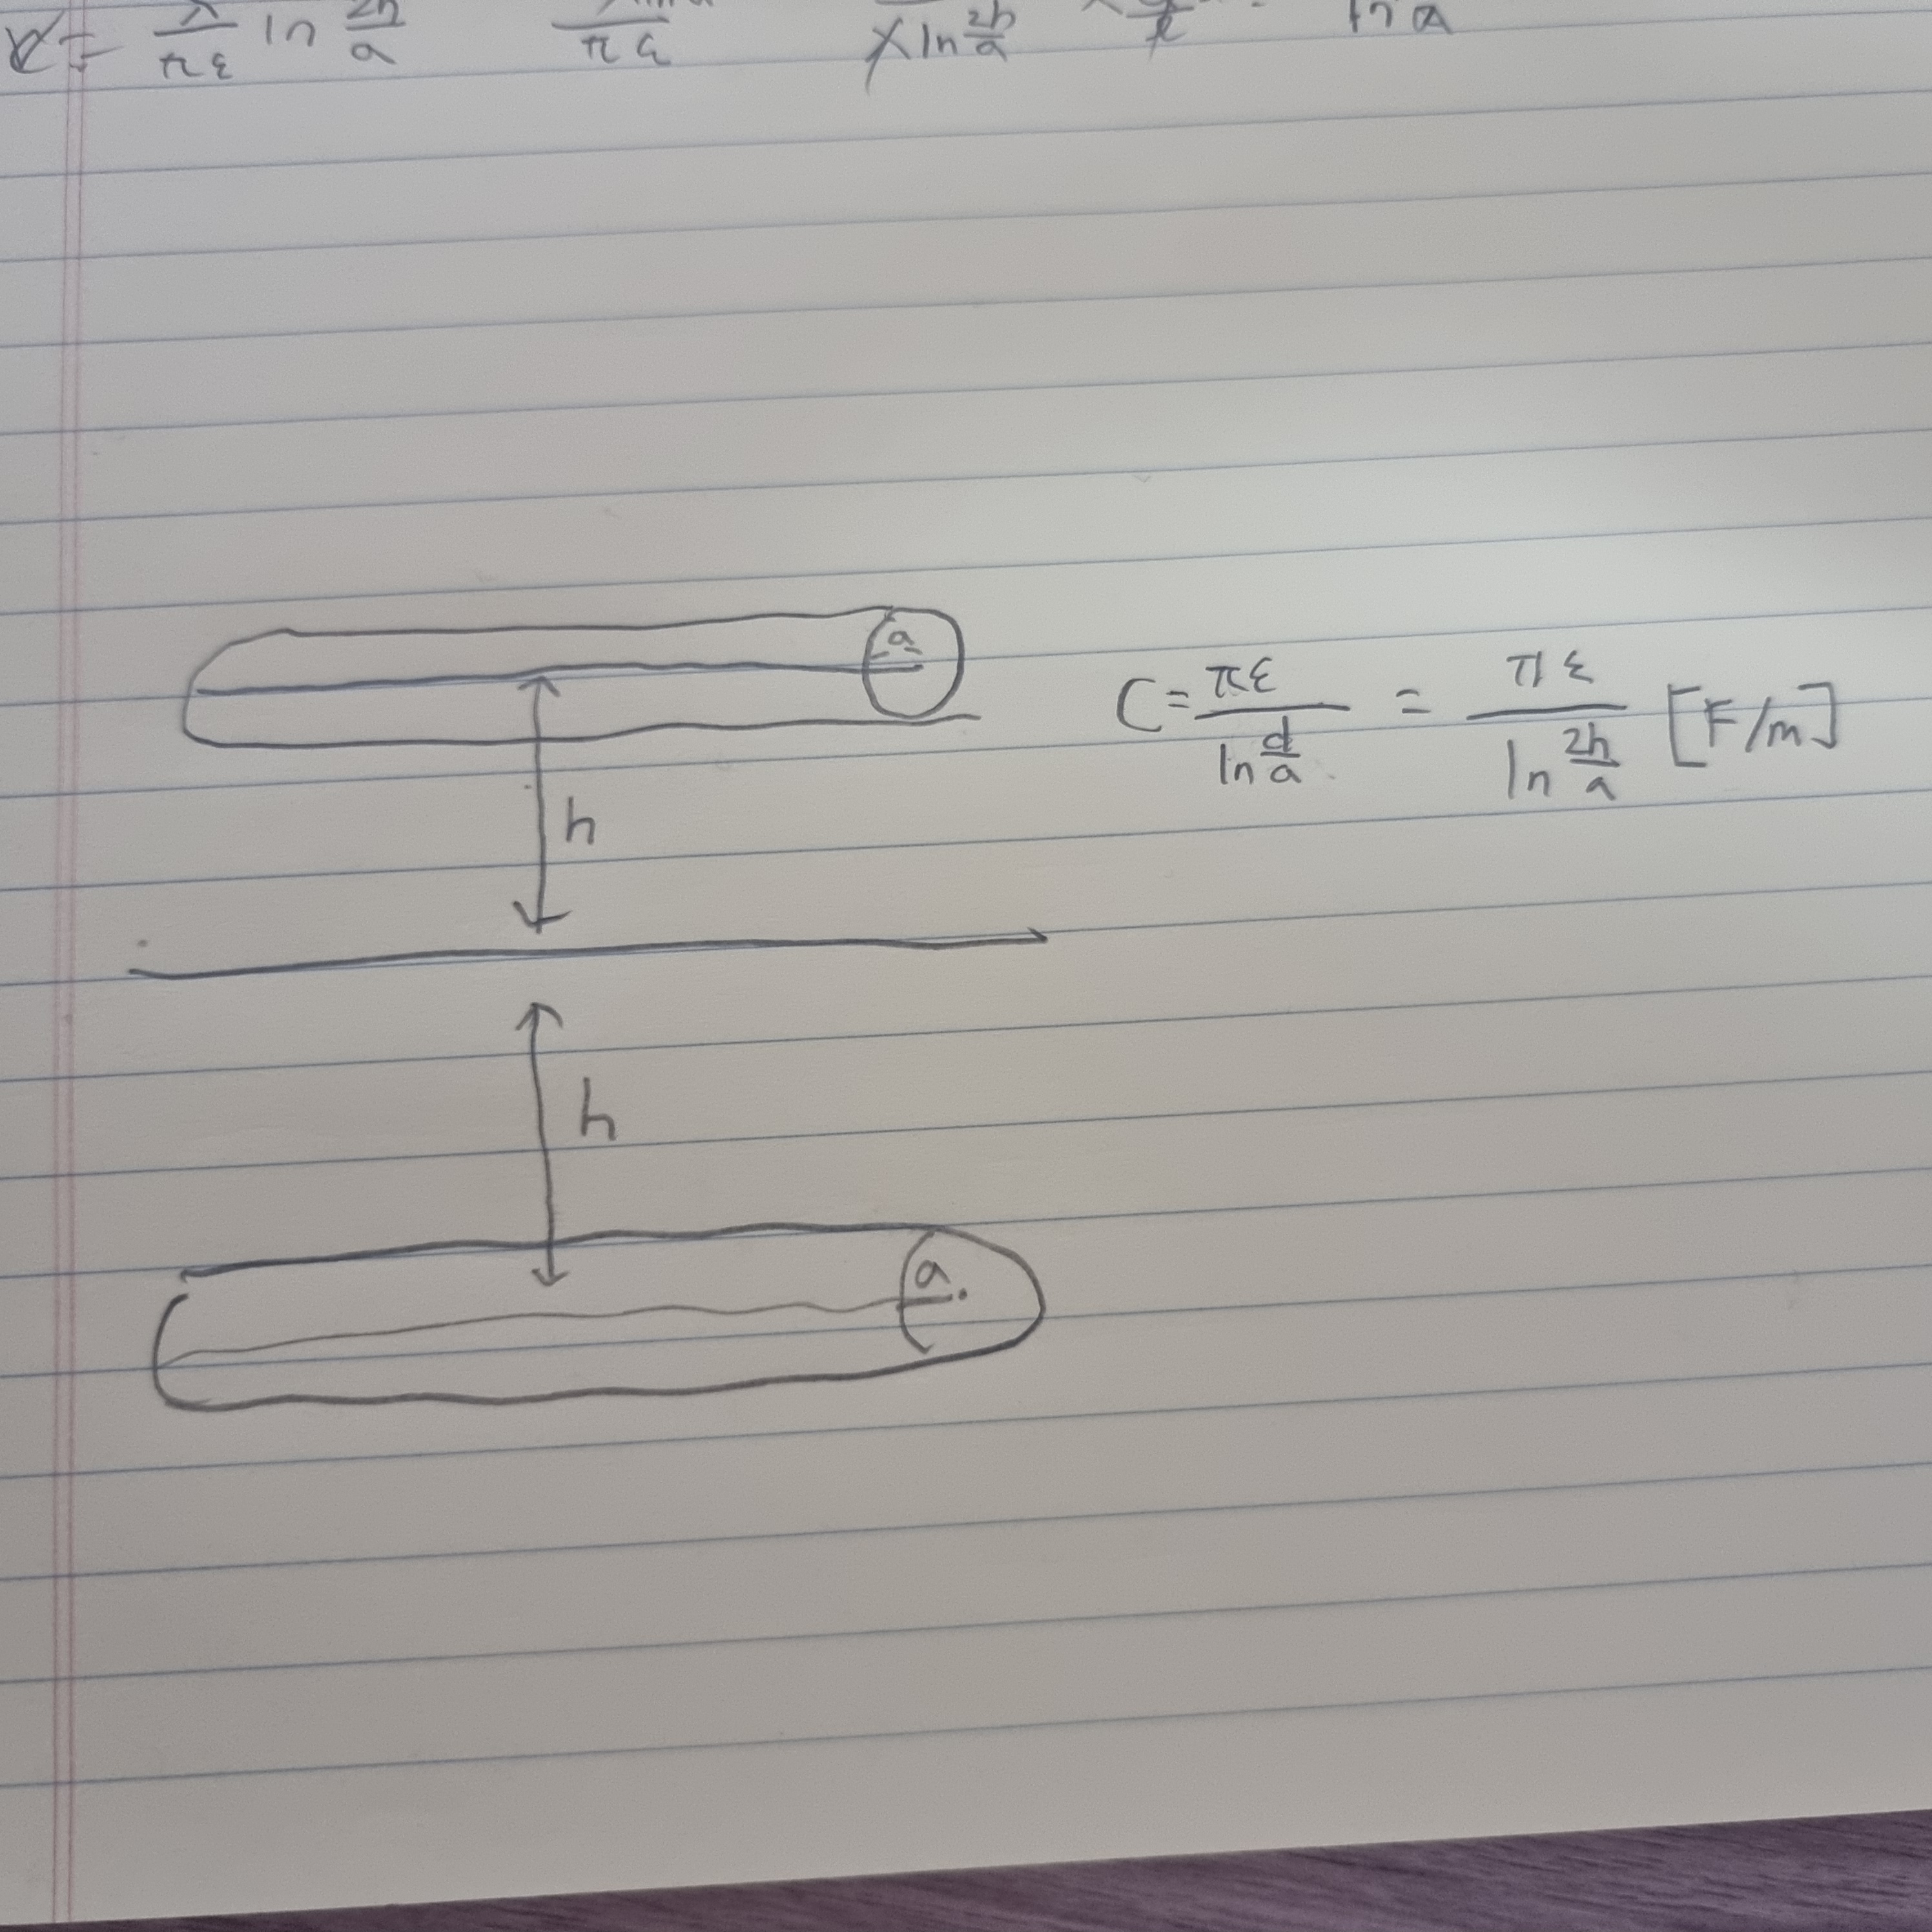 V= λ/πε ln 2h/a πε ln 2h/a ln a
a
C= πε/ln d/a = πε/ln 2h/a [F/m]
h
h
a